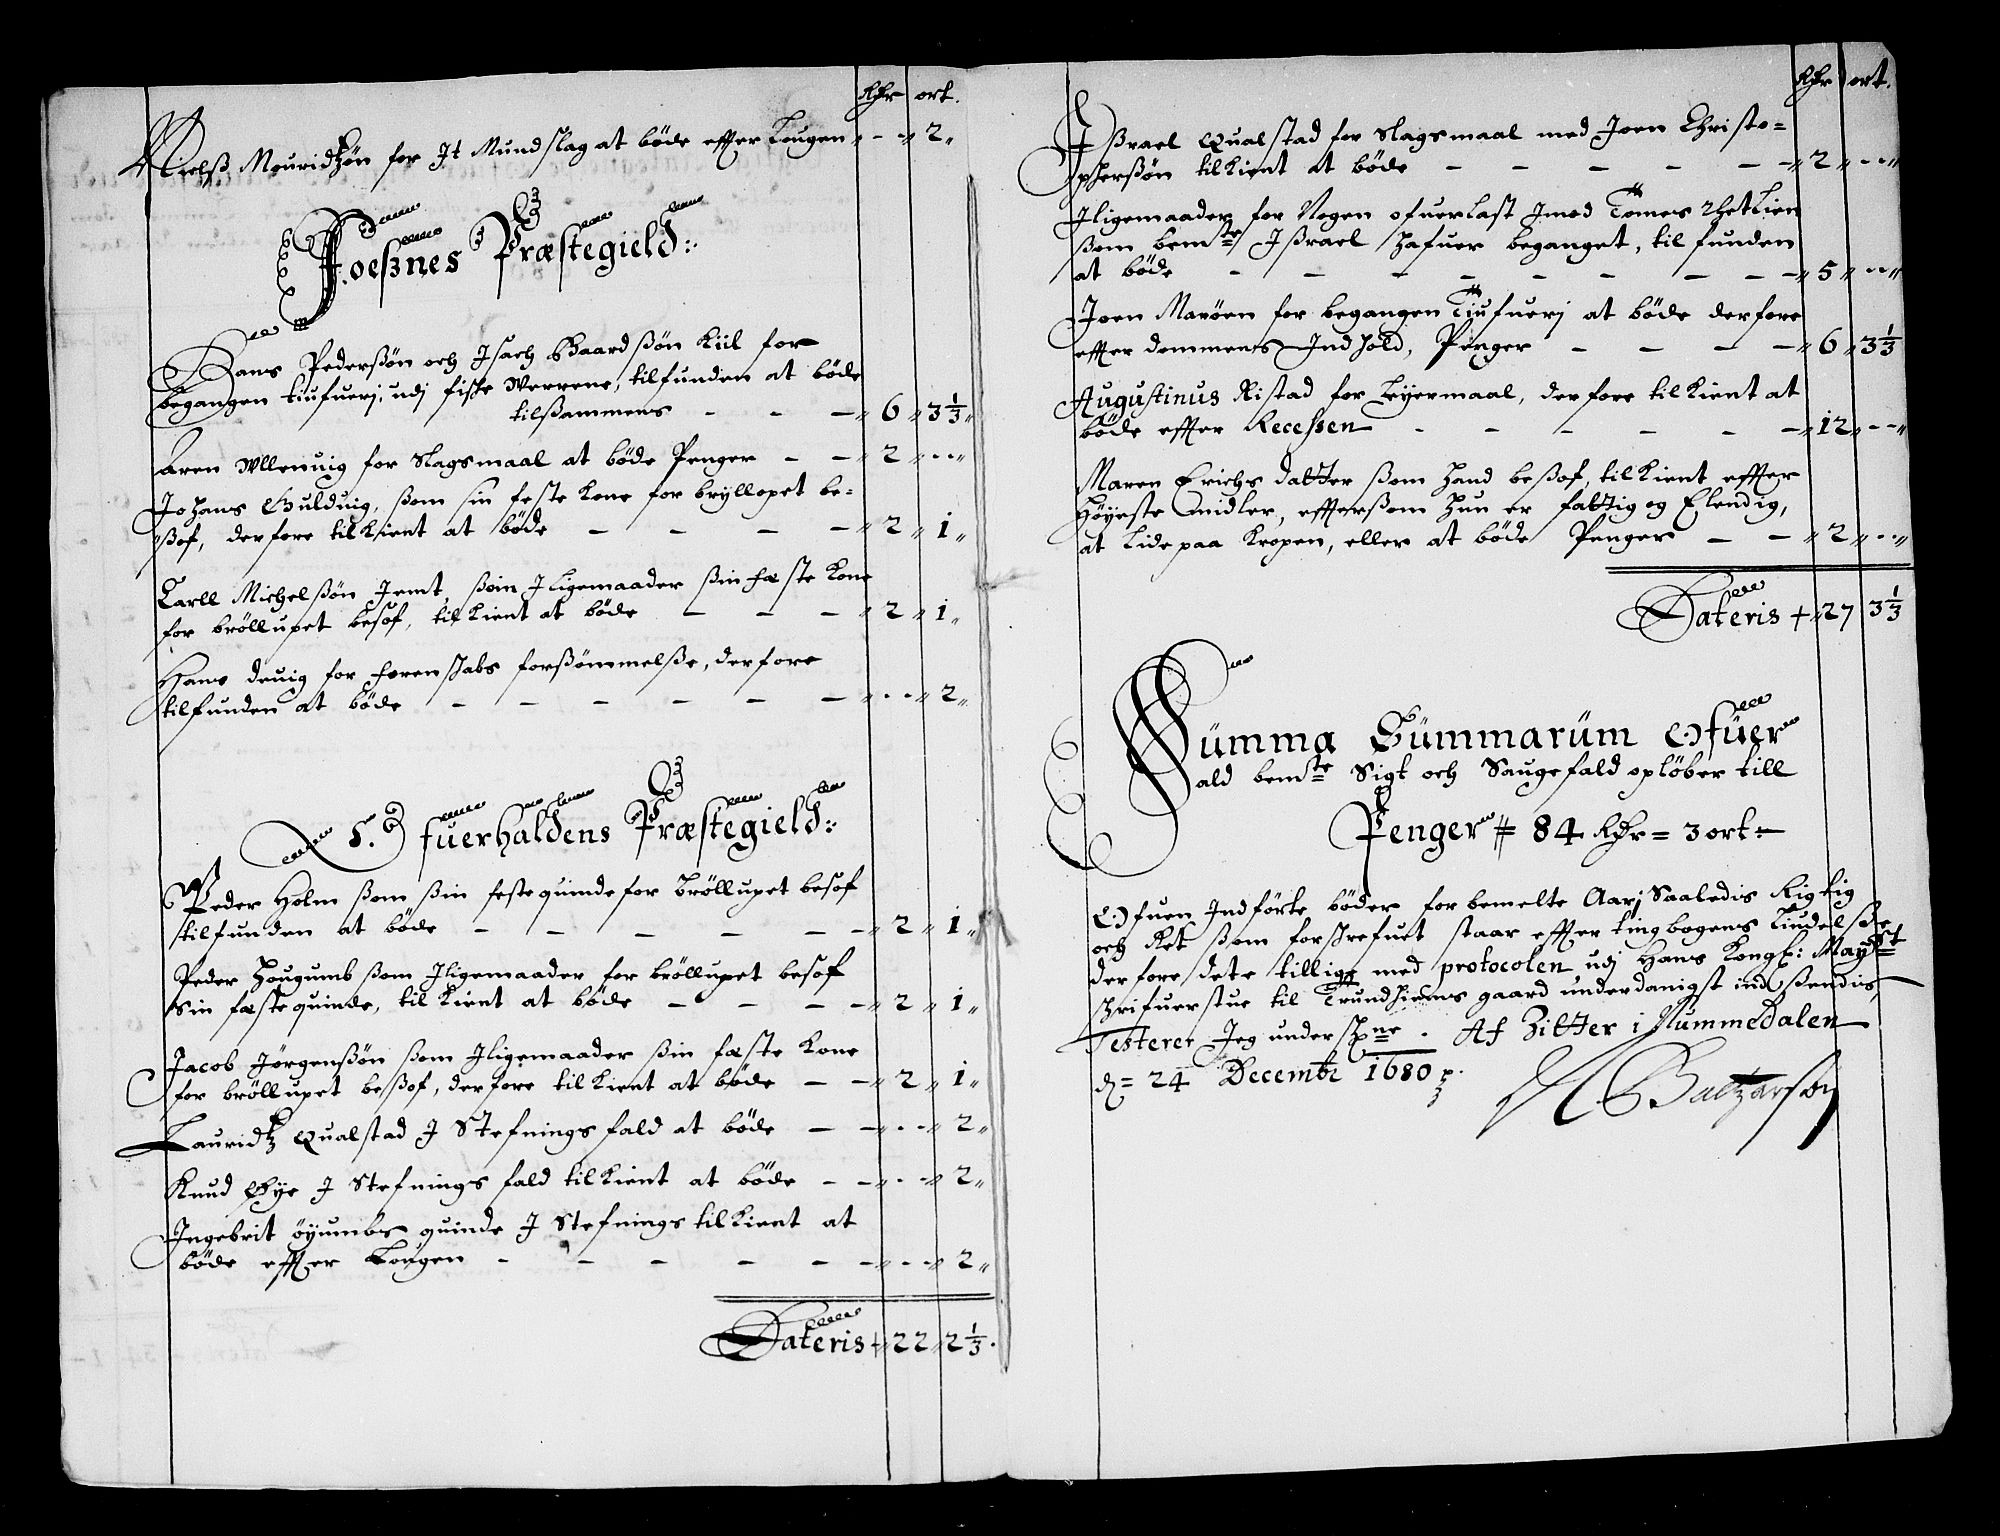 Rdr ort.
Nielss Mouridtzön for It Mundslag at böde effter Lougen " - " 2 "
Foessnes Præstegield:
Hans Pederssön och Isach Baardssön Kiil for
begangen tiufuerj, udj fiske werrene, tilfunden at böde
tilsammens - - - " 6 " 3 1/3 "
Aren Ullenuig for Slagsmaal at böde Penger - - " 2 " - "
Johans Gulduig, som sin feste Kone for bryllopet be=
ssof, derfore tilkient at böde - - - - " 2 " 1 "
Carll Michelssön Jemt, som Jligemaader sin fæste Kone
for bröllupet besof, tilkient at böde - - - " 2 " 1 "
Hans deuig for forenskabs forssömmelsse, derfore
tilfunden at böde - - - - - - " - " 2 "
Ofuerhaldens Præstegield:
Peder Holm som sin feste quinde for Bröllupet besof
tilfunden at böde - - - - - " 2 " 1 "
Peder Hougumb som Jligemaader for bröllupet besof
Sin fæste quinde, tilkient at böde - - - - " 2 " 1 "
Jacob Jörgenssön som Jligemaader sin fæste Kone
for bröllupet bessof, derfore tilkient at böde - - " 2 " 1 "
Lauridtz Qualstad J Stefnings fald at böde - - " - " 2 "
Knud Øye J Stefnings fald tilkient at böde - - " - " 2 "
Ingebrit öyumbs quinde J Stefnings tilkient at
böde effter Lougen - - - - - - " - " 2 "
Lateris + 22 " 2 1/3 .
Rdr ort.
Issrael Qualstad for Slagsmaal med Joen Christo=
pherssön tilkient at böde - - - - - - " 2 " - "
Jligemaader for Nogen ofuerlast Jmod Tomes
som bemte Issrael hafuer beganget, til funden
at böde - - - - - - - - " 5 " - "
Joen Maröen for begangen Tiufuerj at böde derfore
effter dommens Indhold, Penger - - - - " 6 " 3 1/3
Augustinus Ristad for Leyermaal, derfore tilkient at
böde effter Recessen - - - - - - " 12 " - "
Maren Erichs datter som hand bessof, tilkient effter
Höyeste midler, efftersom hun er fattig og Elendig,
at Lide paa Kropen, eller at böde Penger - - " 2 " - "
Lateris + " 27 3 1/3
Summa Summarum Ofuer
ald bemte Sigt och Saugefald oplöber till
Penger # 84 Rdr = 3 ort =
Ofuen Indförte böder for bemelte Aarj Saaledis Rigtig
och Ret som forskrefuet staar effter tingbogens Liudelsse
derfore dete tillige med protocolen udj Hans Kongl: Mayst
skrifuerstue til Trundhiems gaard underdanigst ind ssendis,
Testerer Jeg underskne . Af Zitter i Nummedalen
d= 24 Decembr 1680 p.
Baltzarsön